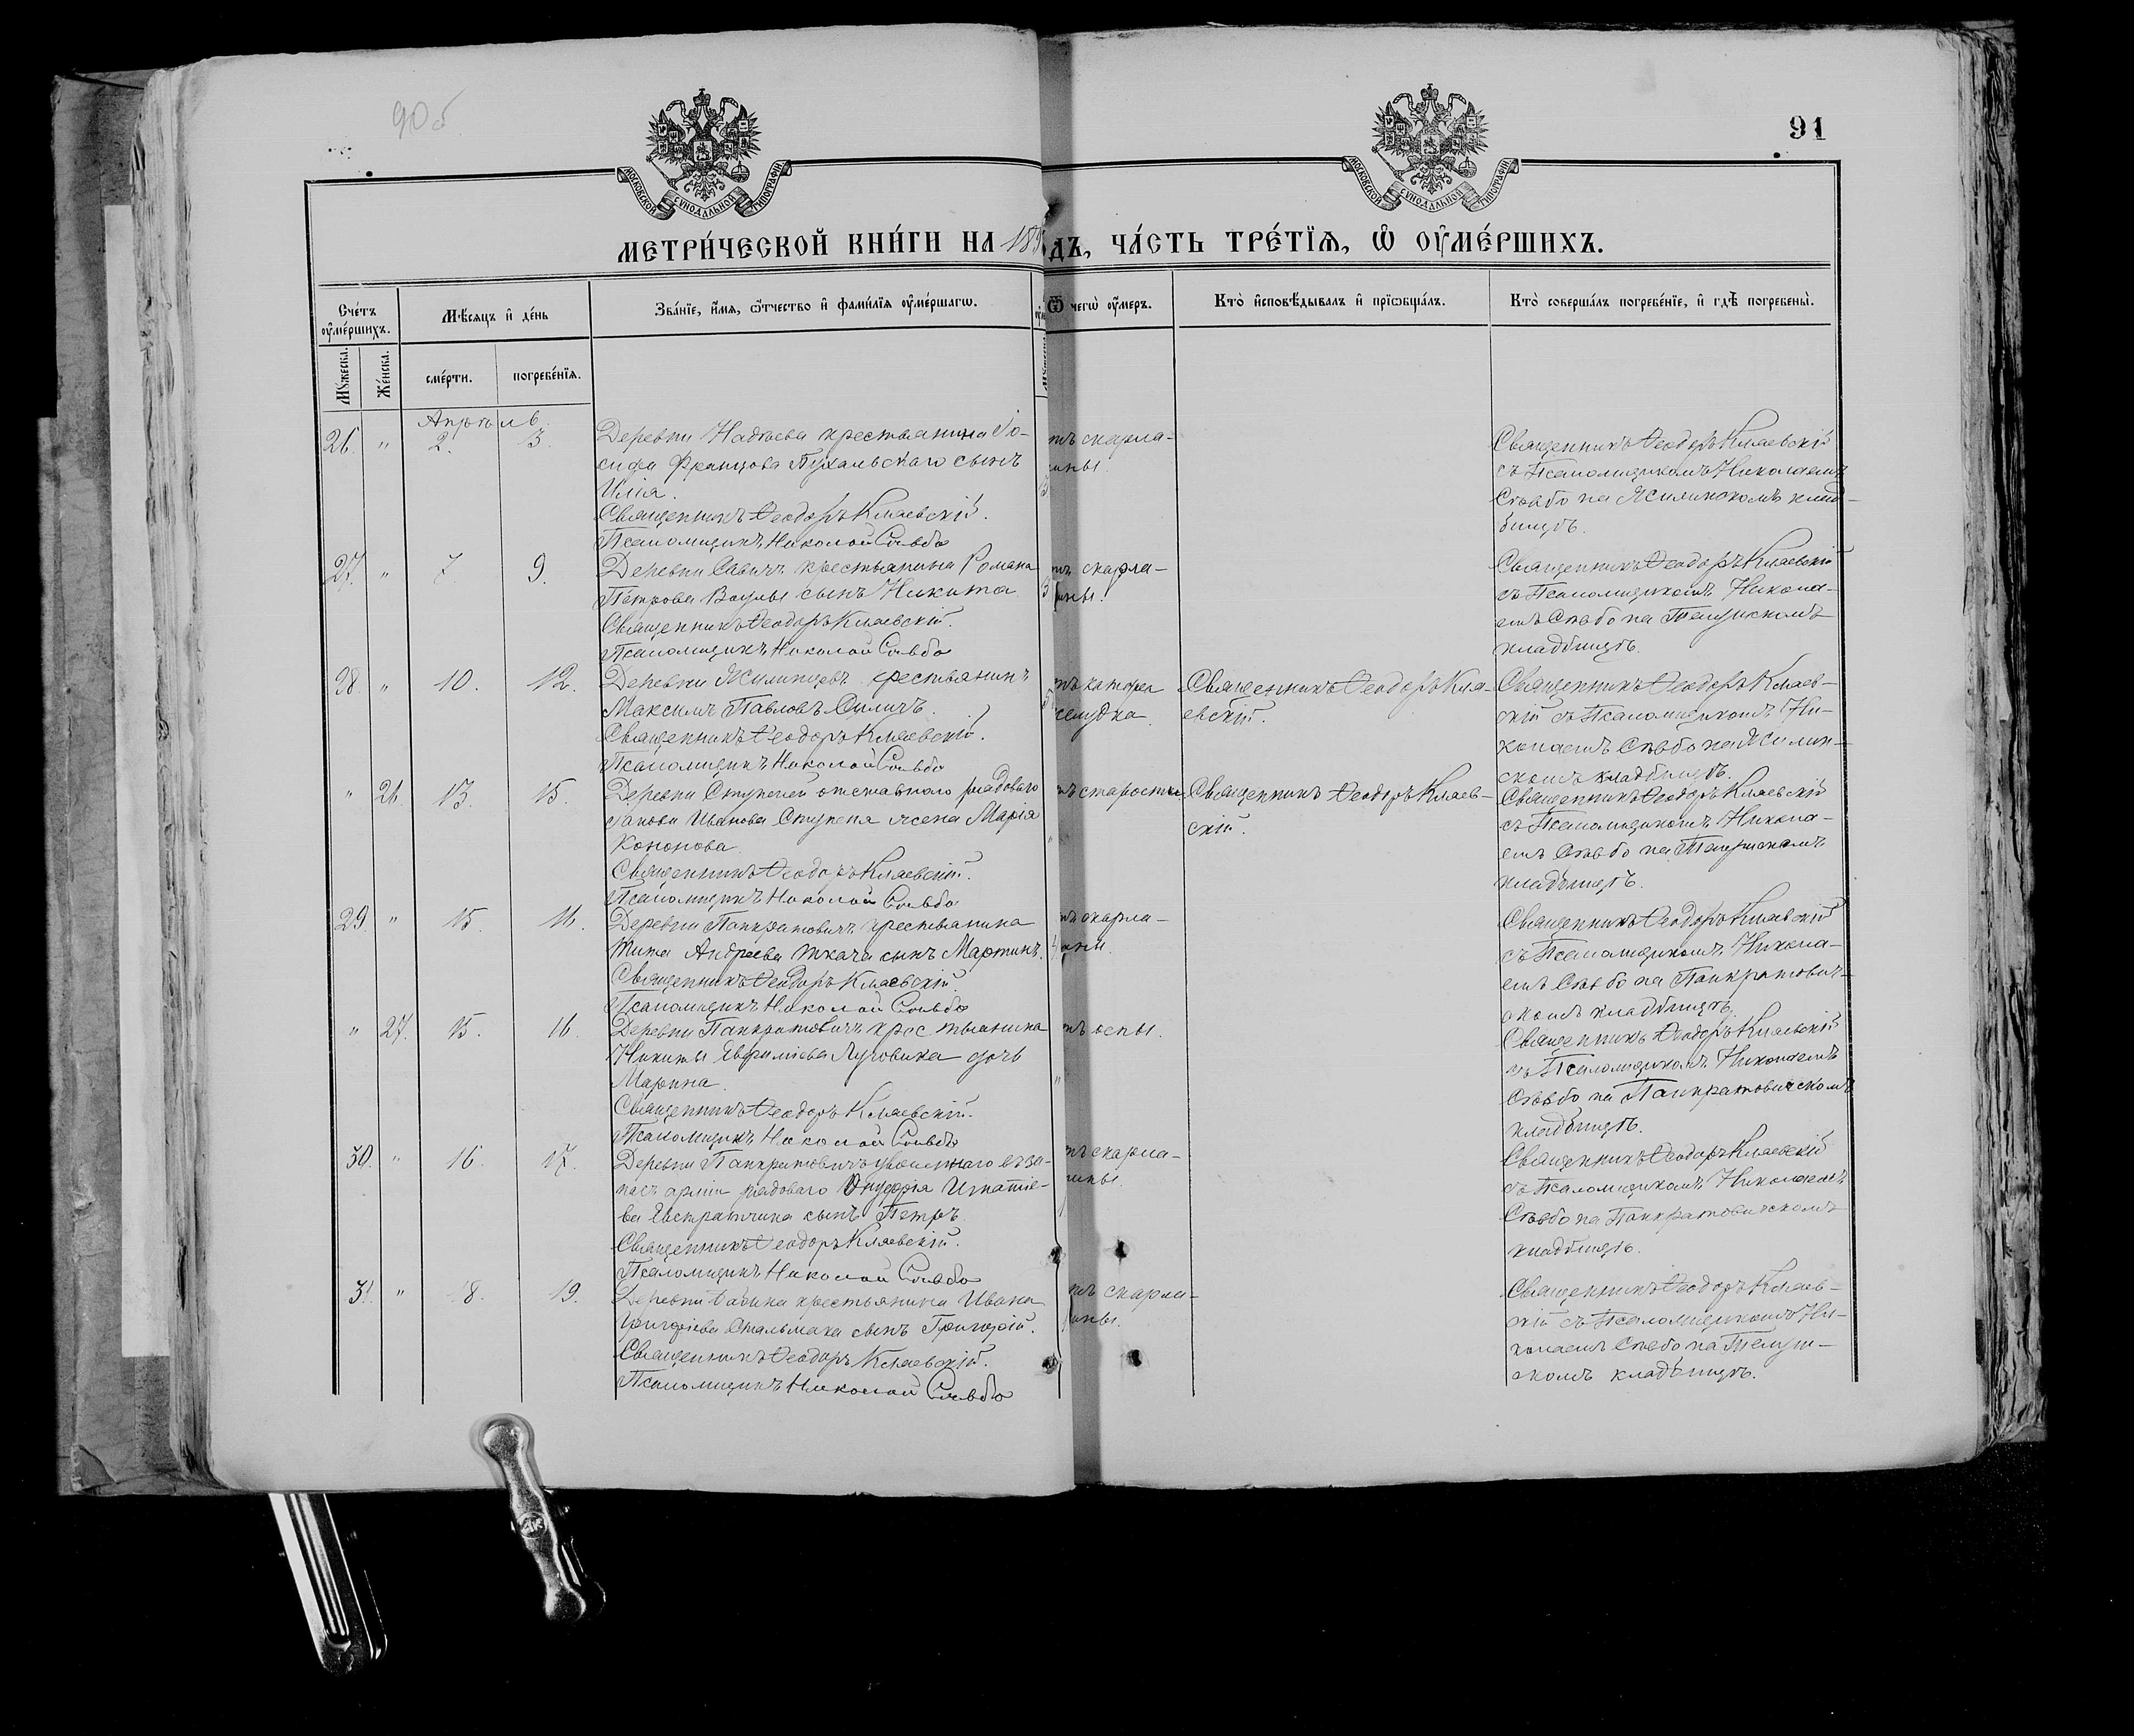 90б
91
МОСКОВСКОЙ СУНОДАЛЬНОЙ ТИПОГРАФІИ
МОСКОВСКОЙ СУНОДАЛЬНОЙ ТИПОГРАФІИ
МЕТРИ́ЧЕСКОЙ КНИ́ГИ НА 189
ДЪ, ЧА́СТЬ ТРЕ́ТІѦ, Ѡ ОУМЕ́РШИХЪ.
Сче́тъ оумершихъ.
Мѣ́сяцъ и де́нь
Зва́ніе, и́мя, ѿтчество и фами́лія оуме́ршагѡ.
Ѿ чегѡ̀ оу́меръ.
Кто̀ исповѣ́дывалъ и пріѡбща́лъ.
Кто̀ соверша́лъ погребе́ніе, и гдѣ̀ погребены̀.
Мꙋжеска.
Же́нска.
сме́рти.
погребе́нія.
Апрѣль
26. " 2. 3.
Деревни Надѣева крестьянина Іо-
сифа Францова Пухальскаго сынъ
Илія.
Священникъ Ѳеодоръ Кляевскій.
Псаломщикъ Николай Сльбо
тъ скарла-
тины.
Священникъ Ѳеодоръ Кляевскій
съ Псаломщикомъ Николаемъ
на Жилинскомъ клад-
бищѣ.
27. " 7. 9.
Деревни Савичъ крестьянина Романа
Петрова сынъ Никита
Священникъ Ѳеодоръ Кляевскій.
Псаломщикъ Николай
тъ скарла-
тины.
Священникъ Ѳеодоръ Кляевскій
съ Псаломщикомъ Никола-
емъ на
кладбищѣ.
28. " 10. 12.
Деревни Жилинцевъ крестьянинъ
Максимъ Павловъ Силичъ.
Священникъ Ѳеодоръ Кляевскій.
Псаломщикъ Николай
тъ катора
желудка.
Священникъ Ѳеодоръ Кля-
евскій.
Священникъ Ѳеодоръ Кляев-
скій съ Псаломщикомъ Ни-
колаемъ на Жилин-
скомъ кладбищѣ.
" 26. 13. 15.
Деревни Ступеней отставного рядоваго
Іакова Иванова Ступеня жена Марія
Кононова.
Священникъ Ѳеодоръ Кляевскій.
Псаломщикъ Николай
тъ старости
Священникъ Ѳеодоръ Кляев-
скій.
Священникъ Ѳеодоръ Кляевскій
съ Псаломщикомъ Никола-
емъ на
кладбищѣ.
29. " 15. 16.
Деревни Панкратовичъ крестьянина
Тита Андреева Ткача сынъ Мартинъ.
Священникъ Ѳеодоръ Кляевскій.
Псаломщикъ Николай
тъ скарла-
тины.
Священникъ Ѳеодоръ Кляевскій
съ Псаломщикомъ Никола-
емъ на Панкратович-
скомъ кладбищѣ.
" 27. 15. 16.
Деревни Панкратовичъ крестьянина
Никиты Евфиміева Луговика дочь
Марина.
Священникъ Ѳеодоръ Кляевскій.
Псаломщикъ Николай
тъ оспы.
Священникъ Ѳеодоръ Кляевскій
съ Псаломщикомъ Николаемъ
на Панкратовичскомъ
кладбищѣ.
30. " 16. 17.
Деревни Панкратовичъ уволеннаго въ за-
пасъ арміи рядоваго Онуфрія Игнатіе-
ва Евстратчика сынъ Петръ.
Священникъ Ѳеодоръ Кляевскій.
Псаломщикъ Николай
тъ скарла-
тины.
Священникъ Ѳеодоръ Кляевскій
съ Псаломщикомъ Николаемъ
на Панкратовичскомъ
кладбищѣ.
31. " 18. 19.
Деревни крестьянина Ивана
Григоріева Стальмаха сынъ Григорій.
Священникъ Ѳеодоръ Кляевскій.
Псаломщикъ Николай
тъ скарла-
тины.
Священникъ Ѳеодоръ Кляев-
скій съ Псаломщикомъ Ни-
колаемъ на
скомъ кладбищѣ.